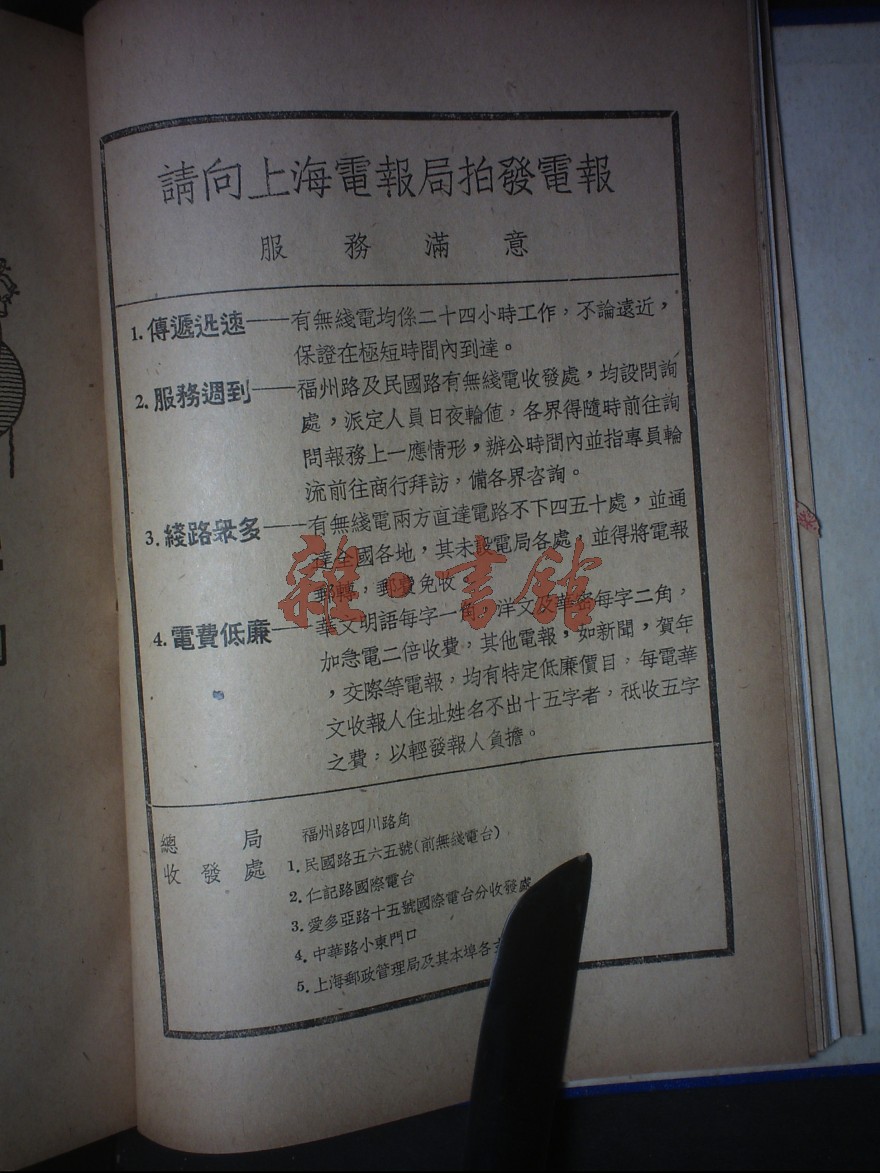 請向上海電報局拍發電報
服務滿意
1. 傳遞迅速——有無綫電均係二十四小時工作，不論遠近，
保證在極短時間內到達。
2. 服務週到——福州路及民國路有無綫電收發處，均設問詢
處，派定人員日夜輪值，各界得隨時前往詢
問報務上一應情形，辦公時間內並指專員輪
流前往商行拜訪，備各界咨詢。
3. 綫路衆多——有無綫電兩方直達電路不下四五十處，並通
達全國各地，其未設電局各處，並得將電報
郵轉，郵費免收。
4. 電費低廉——華文明語每字一角，洋文及華密每字二角，
加急電二倍收費，其他電報，如新聞，賀年
，交際等電報，均有特定低廉價目，每電華
文收報人住址姓名不出十五字者，祗收五字
之費，以輕發報人負擔。
總局 福州路四川路角
收發處 1. 民國路五六五號(前無綫電台)
2. 仁記路國際電台
3. 愛多亞路十五號國際電台分收發處
4. 中華路小東門口
5. 上海郵政管理局及其本埠各
雜·書館